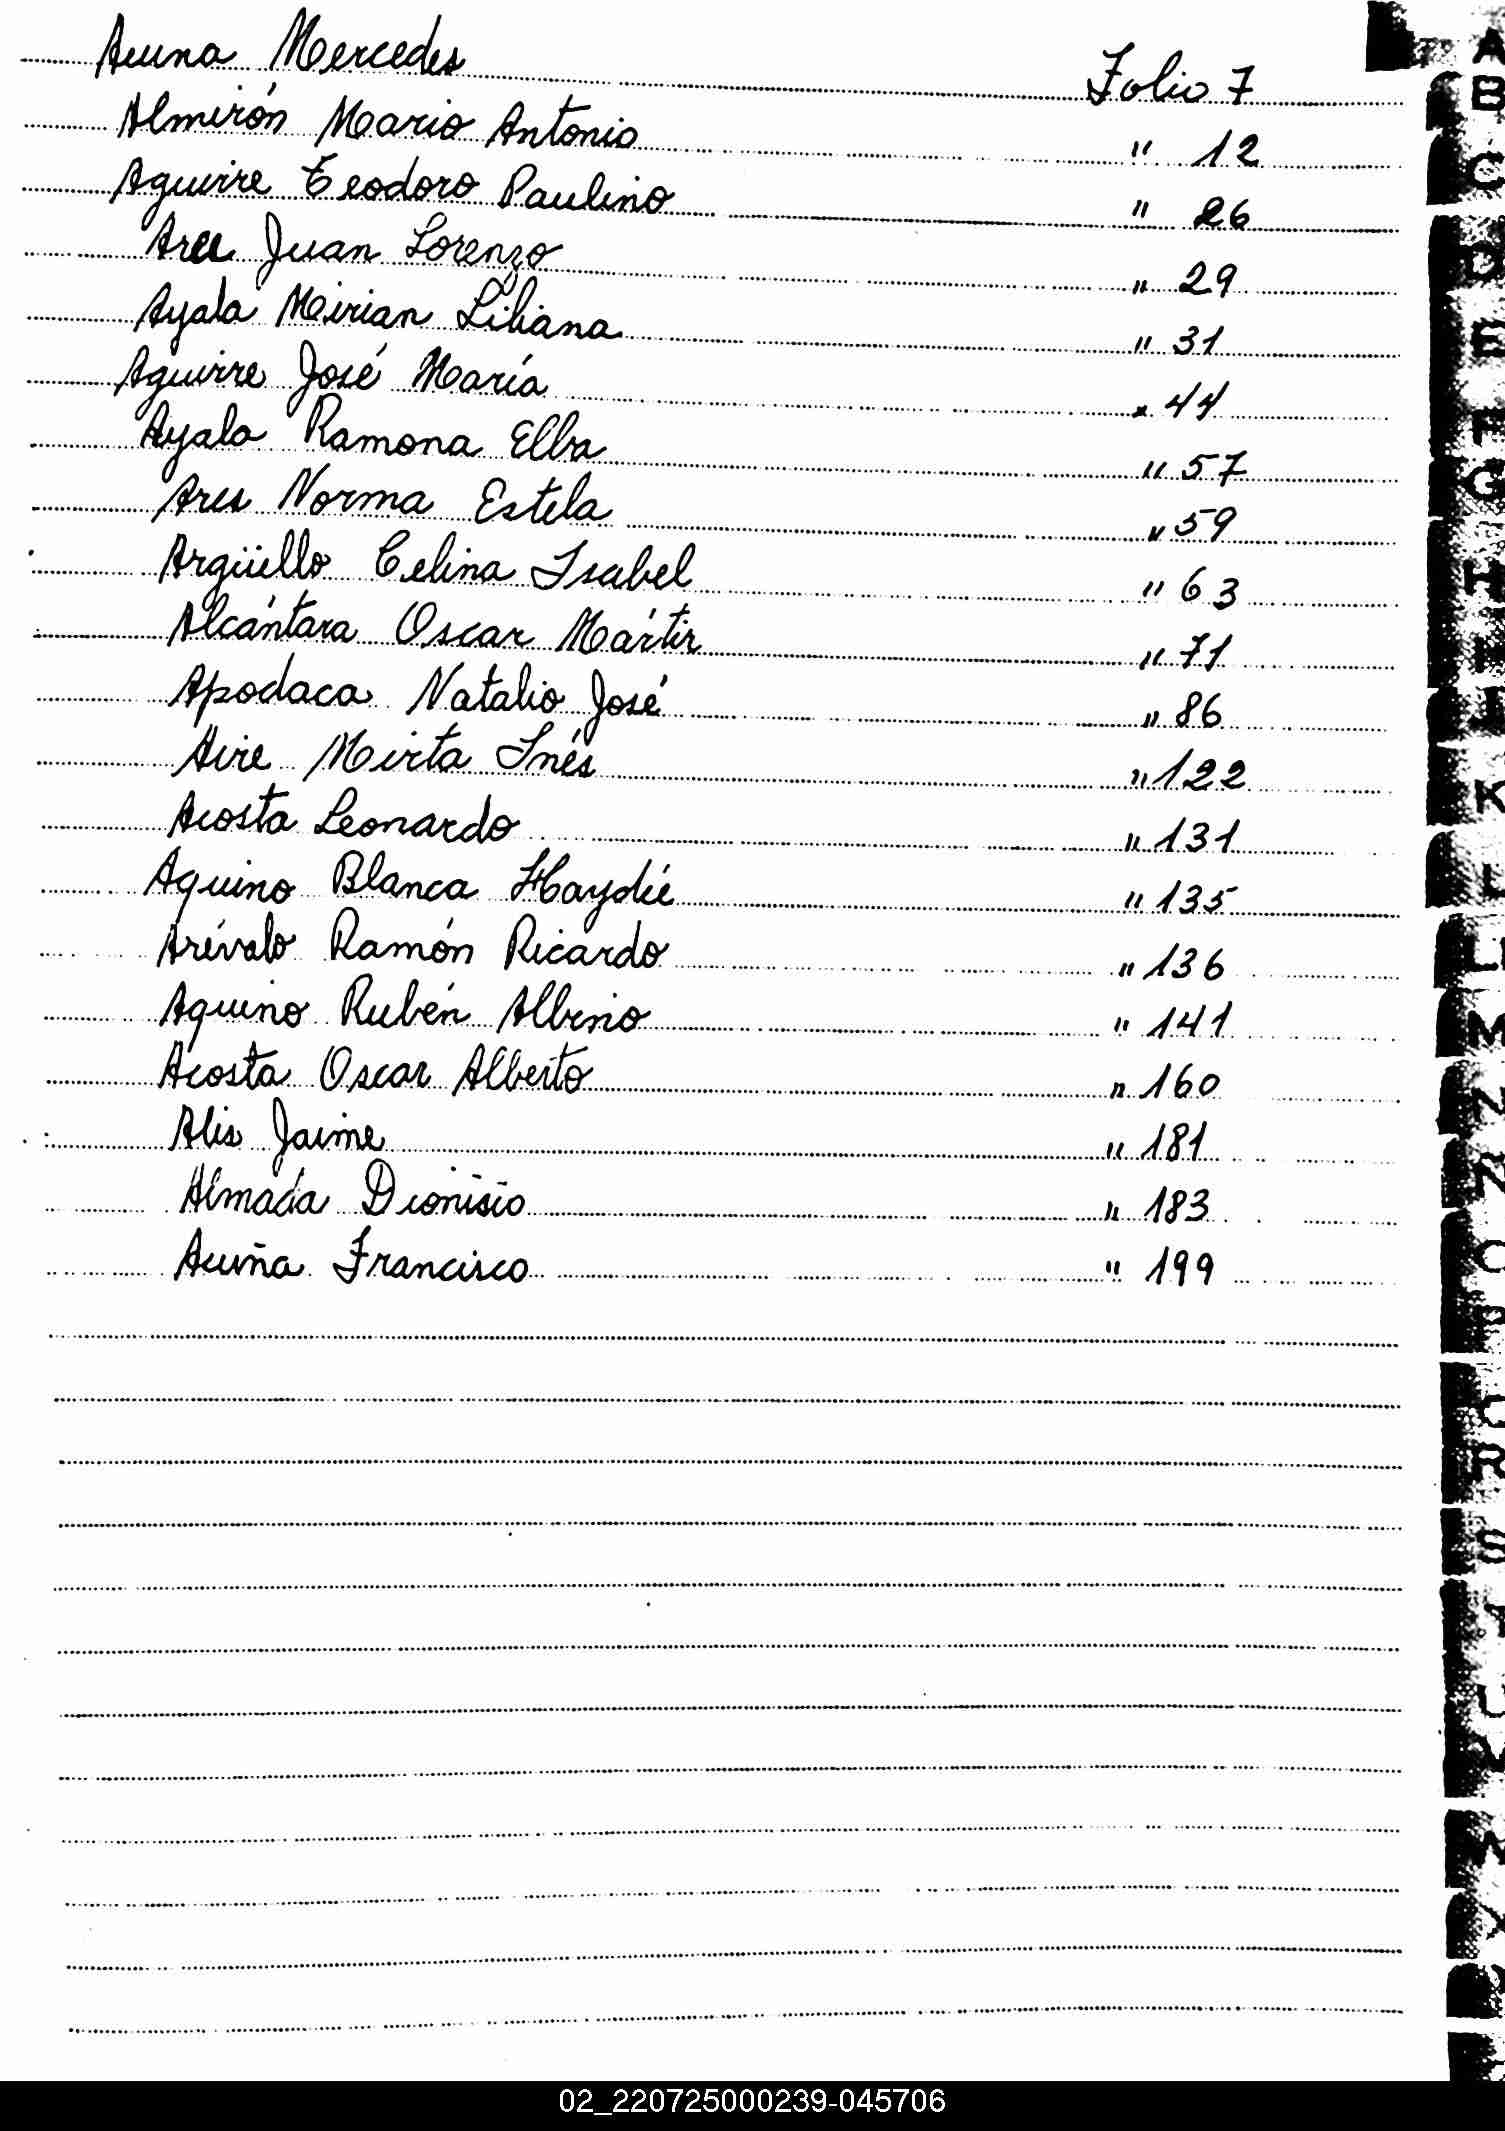 Acuna Mercedes Folio 7
Almirón Mario Antonio " 12
Aguirre Teodoro Paulino " 26
Arce Juan Lorenzo " 29
Ayala Mirian Liliana " 31
Aguirre José María " 44
Ayala Ramona Elba " 57
Ares Norma Estela " 59
Argüello Celina Isabel " 63
Alcántara Oscar Mártir " 71
Apodaca Natalio José " 86
Aire Mirta Inés " 122
Acosta Leonardo " 131
Aquino Blanca Haydée " 135
Arévalo Ramón Ricardo " 136
Aquino Rubén Albino " 141
Acosta Oscar Alberto " 160
Alis Jaime " 181
Almada Dionisio " 183
Acuña Francisco " 199
A
B
C
D
E
F
G
H
I
J
K
L
LL
M
N
Ñ
O
P
Q
R
S
T
U
V
W
X
02_220725000239-045706